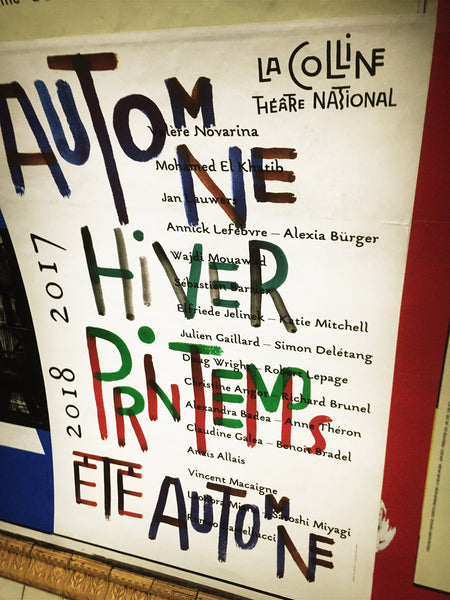 LA COLLINE
THÉÂTRE NATIONAL
AUTOMNE
Valère Novarina
Mohamed El Khatib
Jan Lauwers
Annick Lefebvre – Alexia Bürger
HIVER
Wajdi Mouawad
Sébastien Barrier
Elfriede Jelinek – Katie Mitchell
2017
2018
PRINTEMPS
Julien Gaillard – Simon Delétang
Doug Wright – Robert Lepage
Christine Angot – Richard Brunel
Alexandra Badea – Anne Théron
Claudine Galea – Benoit Bradel
Anaïs Allais
ÉTÉ AUTOMNE
Vincent Macaigne
Satoshi Miyagi
Romeo Castellucci